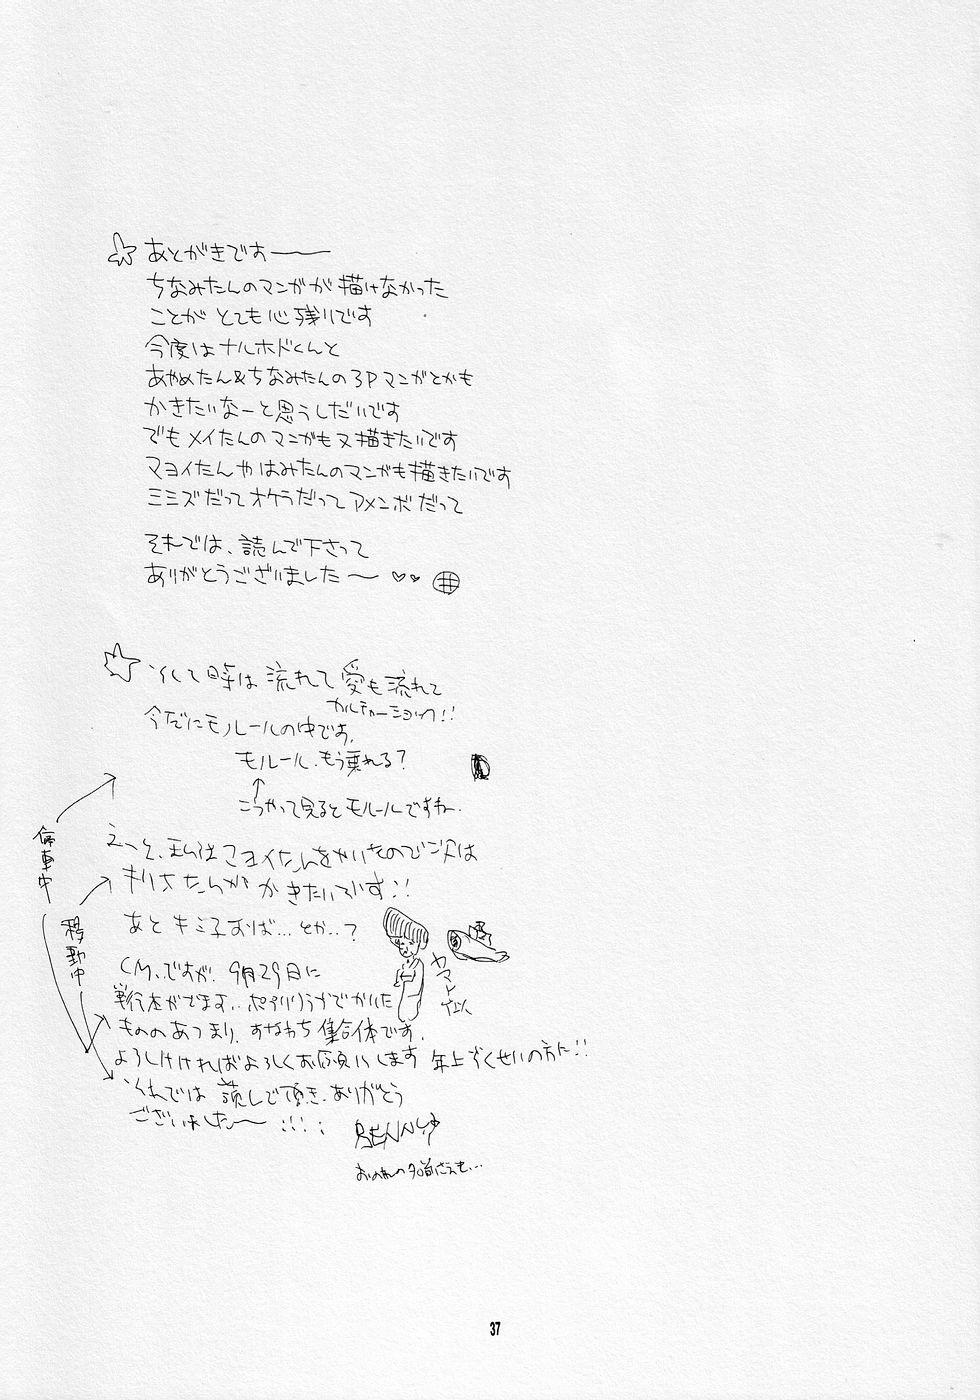 あとがきですーー
ちなみたんのマンガが描けなかった
ことがとても心残りです
今度はナルホドくんと
あやめたん&ちなみたんの3Pマンガとかも
かきたいなーと思うしだいです
でもメイたんのマンガも又描きたいです
マヨイたんやはみたんのマンガも描きたいです
ミミズだってオケラだってアメンボだって
それでは、読んで下さって
ありがとうございました〜 ♡♡ 井
そして時は流れて愛も流れて
カルチャーショック!!
今だにモノレールの中です。
モルール、もう乗れる?
↑
こうやって見るとモルールですね。
停車中
えっと、私はマヨイたんをかいたので次は
キリオたんがかきたいです!!
移動中
あとキミ子おば…とか…?
ヤマト
CM、ですが、9月29日に
単行本がでます。
でかいた
もののあつまり、すなわち集合体です。
よろしければよろしくお願いします 年上
の方に!!
それでは読んで頂き、ありがとう
ございました〜 :::;
BENNY
おのれの名前さえも…
37